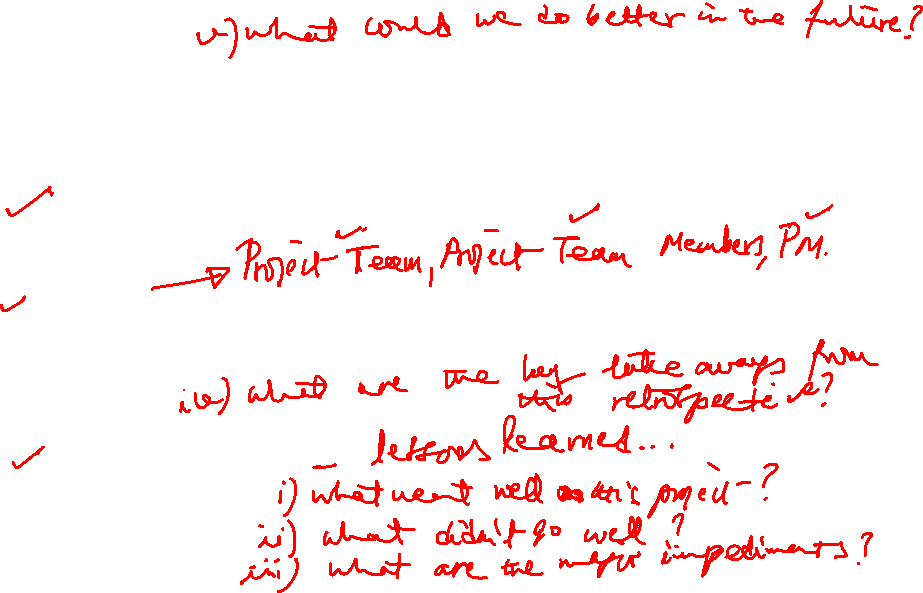 v) what could we do better in the future?
Project Team, Project Team Members, PM.
iv) what are the key take aways from
this retrospective?
lessons learned...
i) what went well in this project?
ii) what didn't go well?
iii) what are the major impediments?